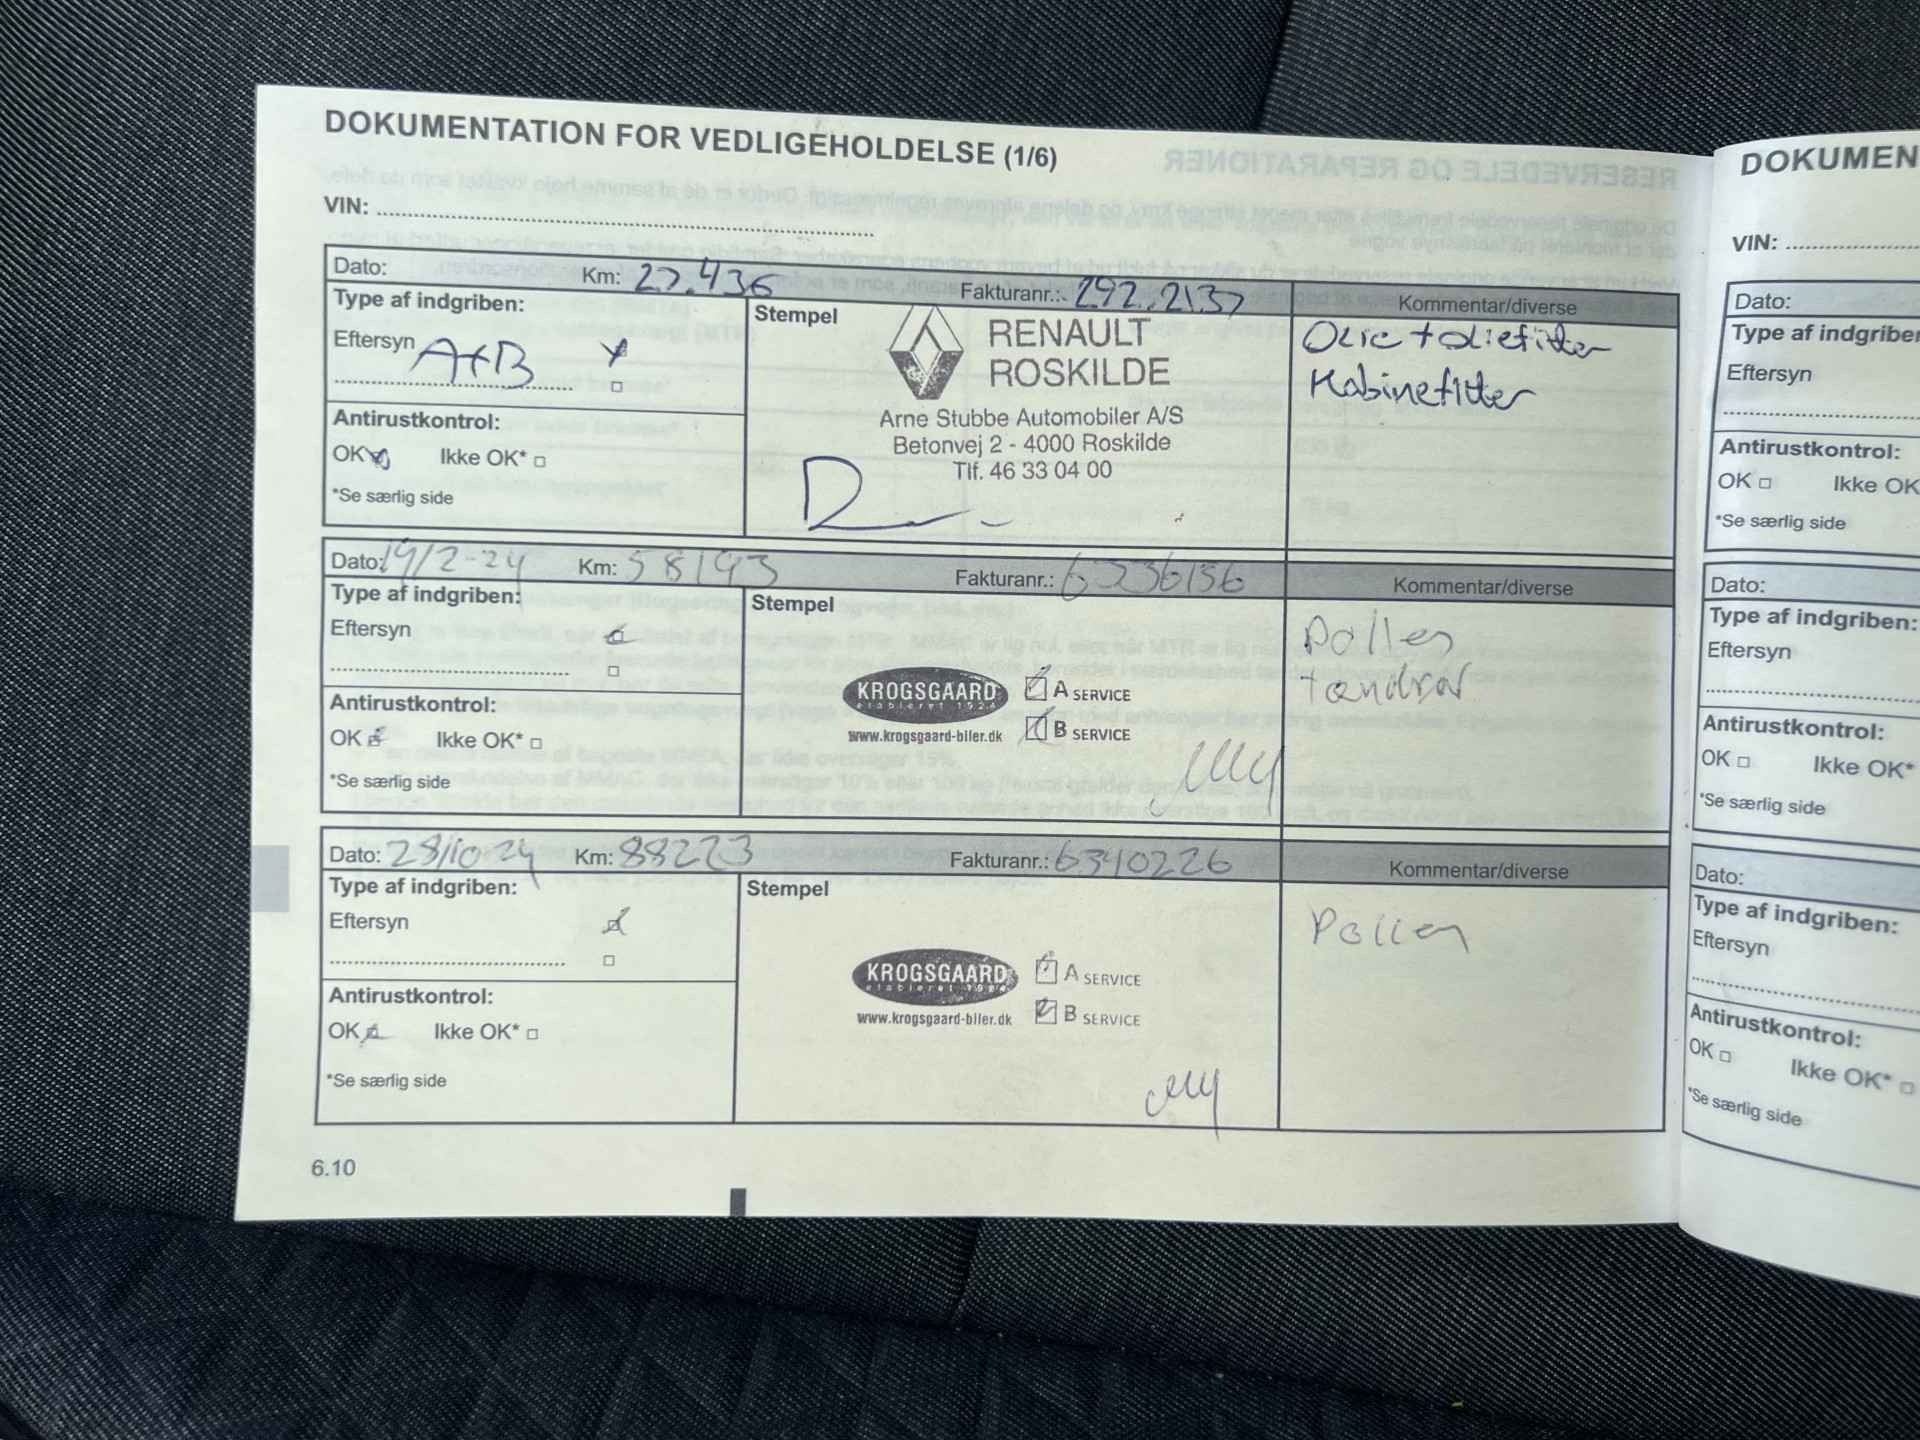 DOKUMENTATION FOR VEDLIGEHOLDELSE (1/6)
VIN:
Dato: Km: 27.436 Fakturanr.: 292.2137 Kommentar/diverse
Type af indgriben: Stempel
Eftersyn A+B
RENAULT
ROSKILDE
Arne Stubbe Automobiler A/S
Betonvej 2 - 4000 Roskilde
Tlf. 46 33 04 00
Olie + oliefilter
Kabinefilter
Antirustkontrol:
OK Ikke OK*
*Se særlig side
Dato: 19/2-24 Km: 58193 Fakturanr.: 6336156 Kommentar/diverse
Type af indgriben: Stempel
Eftersyn
KROGSGAARD
etableret 1924
www.krogsgaard-biler.dk
A SERVICE
B SERVICE
Pollen
tændrør
Antirustkontrol:
OK Ikke OK*
*Se særlig side
Dato: 28/10 24 Km: 88223 Fakturanr.: 6340226 Kommentar/diverse
Type af indgriben: Stempel
Eftersyn
KROGSGAARD
etableret 1924
www.krogsgaard-biler.dk
A SERVICE
B SERVICE
Pollen
Antirustkontrol:
OK Ikke OK*
*Se særlig side
6.10
DOKUMEN
VIN:
Dato:
Type af indgriber
Eftersyn
Antirustkontrol:
OK Ikke OK
*Se særlig side
Dato:
Type af indgriben:
Eftersyn
Antirustkontrol:
OK Ikke OK*
*Se særlig side
Dato:
Type af indgriben:
Eftersyn
Antirustkontrol:
OK Ikke OK*
*Se særlig side